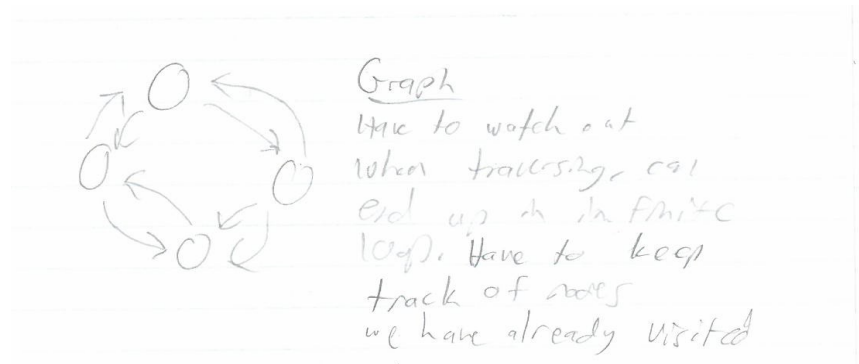 Graph
Have to watch out
when traversing, can
end up in infinite
loop. Have to keep
track of nodes
we have already visited